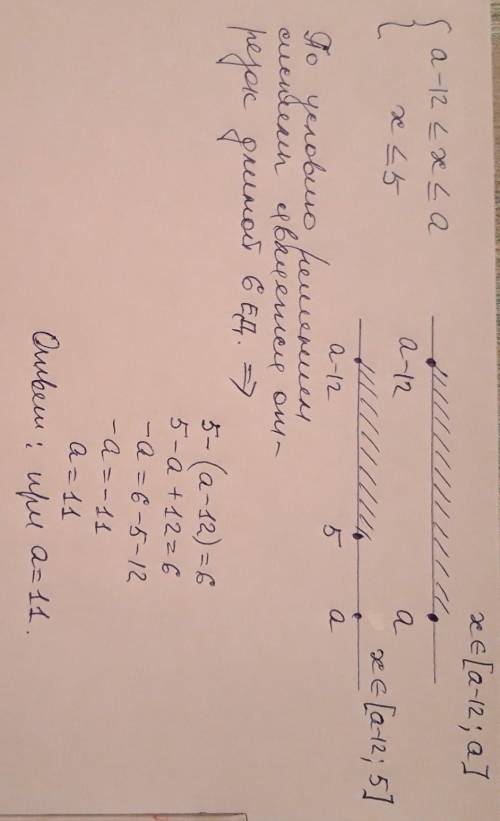 { a-12 ≤ x ≤ a
x ≤ 5
x ∈ [a-12; a]
a-12 a
x ∈ [a-12; 5]
a-12 5 a
По условию решением
системы является от-
резок длиной 6 ед. ⇒
5-(a-12)=6
5-a+12=6
-a=6-5-12
-a=-11
a=11
Ответ: при a=11.